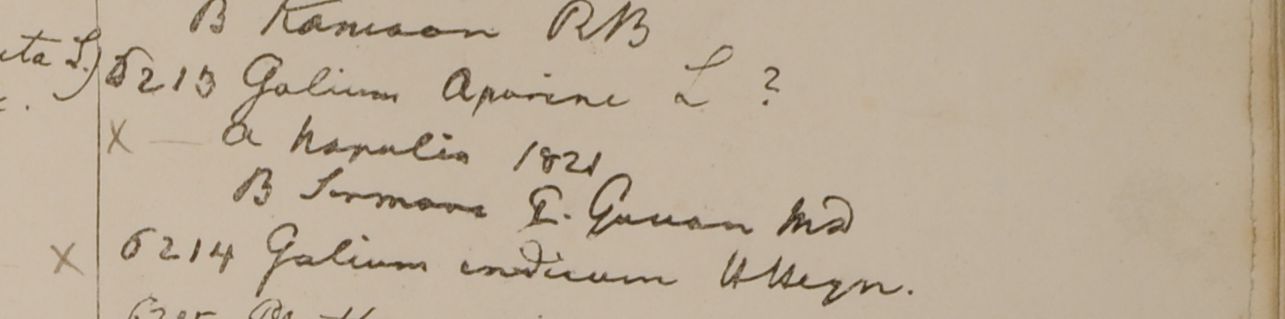 B Kamaon RB
ita L.) 6213 Galium Aparine L ?
x — a Napalia 1821
B Sirmore G. Govan Md
x 6214 Galium indicum HHeyn.